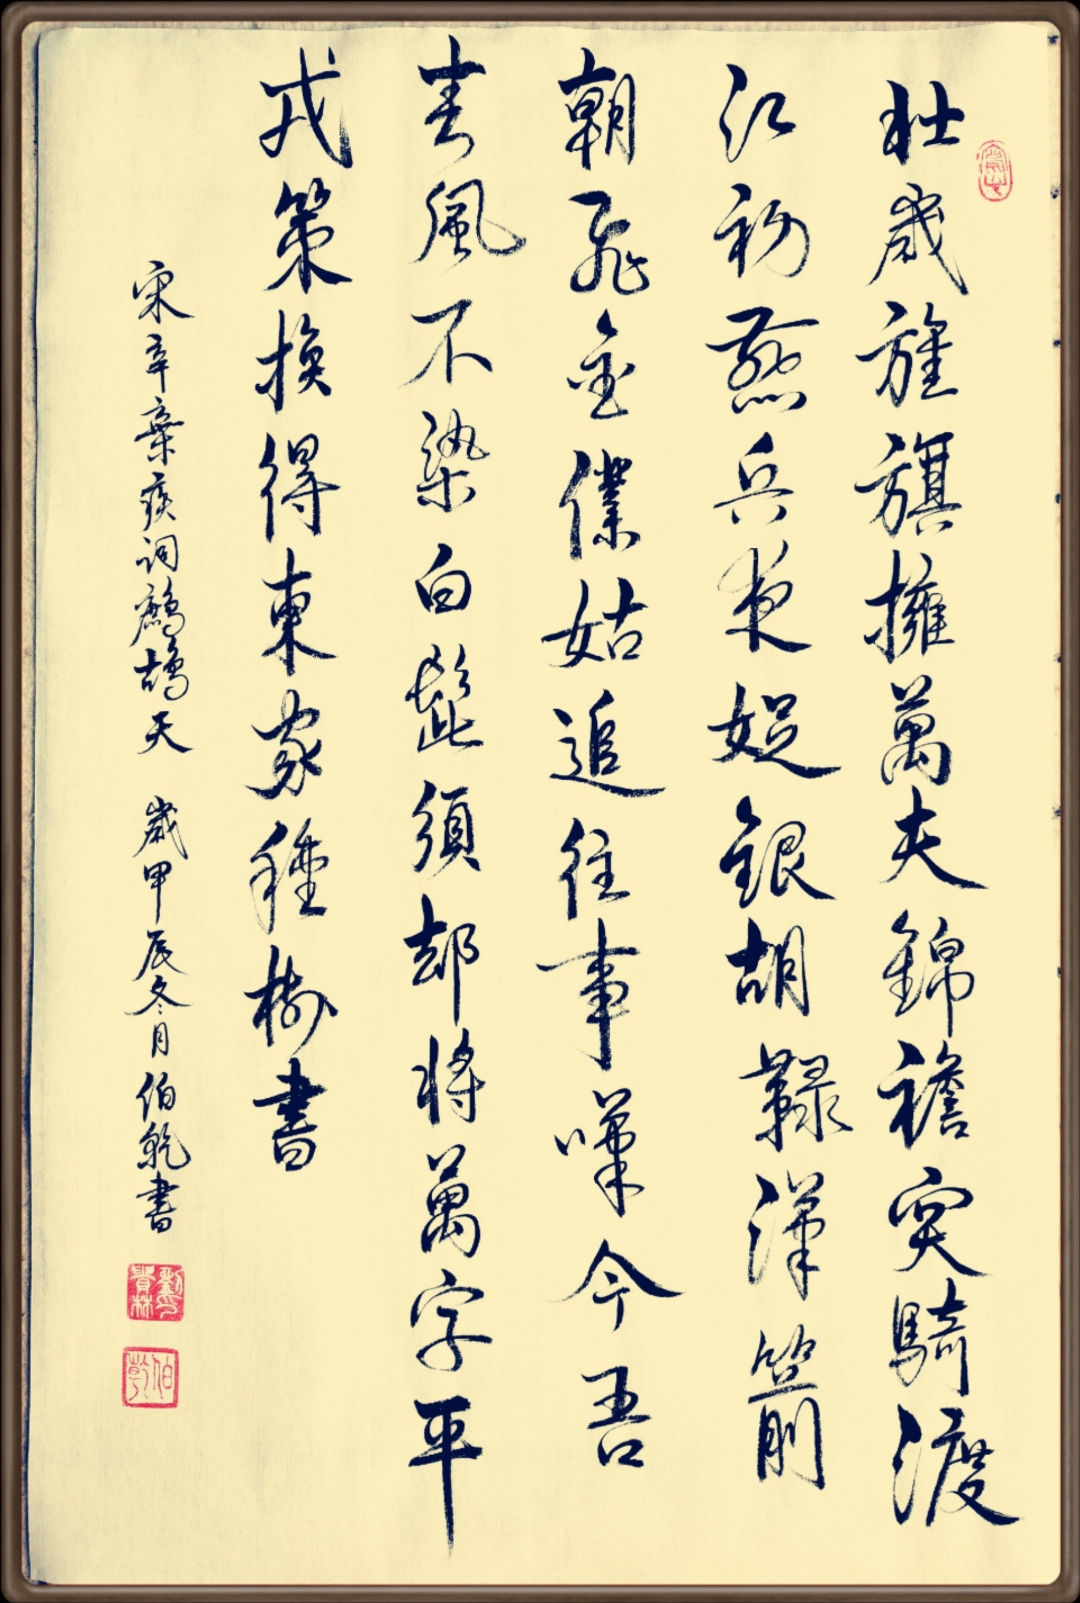 壯歲旌旗擁萬夫錦襜突騎渡
江初燕兵夜娖銀胡䩮漢箭
朝飛金僕姑追往事嘆今吾
春風不染白髭須却將萬字平
戎策換得東家種樹書
宋辛棄疾詞鷓鴣天 歲甲辰冬月伯乾書
伯乾